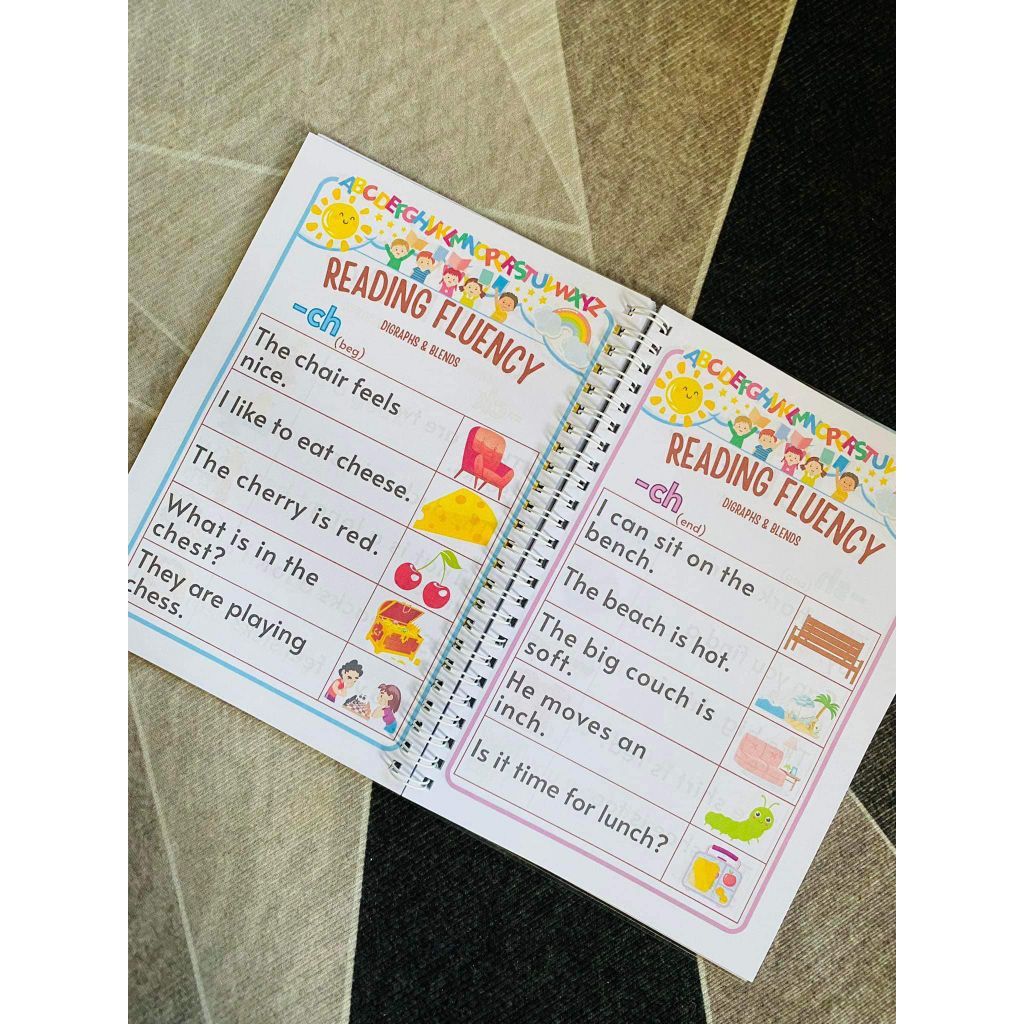 ABCDEFGHIJKLMNOPQRSTUVWXYZ
READING FLUENCY
DIGRAPHS & BLENDS
-ch
(beg)
The chair feels
nice.
I like to eat cheese.
The cherry is red.
What is in the
chest?
They are playing
chess.
ABCDEFGHIJKLMNOPQRSTUV
READING FLUENCY
DIGRAPHS & BLENDS
-ch
(end)
I can sit on the
bench.
The beach is hot.
The big couch is
soft.
He moves an
inch.
Is it time for lunch?